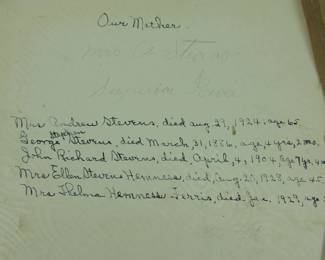 Our Mother
Mrs A Stevens
Superior Iowa
Mrs Andrew Stevens, died Aug 29, 1924. age 65
George Stevens, died March, 31, 1886, age, 4 yrs, 2 mo.
John Richard Stevens, died, April, 4, 1904 age 7 yr, 4
Mrs Ellen Stevens Hemness, died, Aug 20, 1928, age 45
Mrs Thelma Hemness Ferris, died, Jan. 1929, age